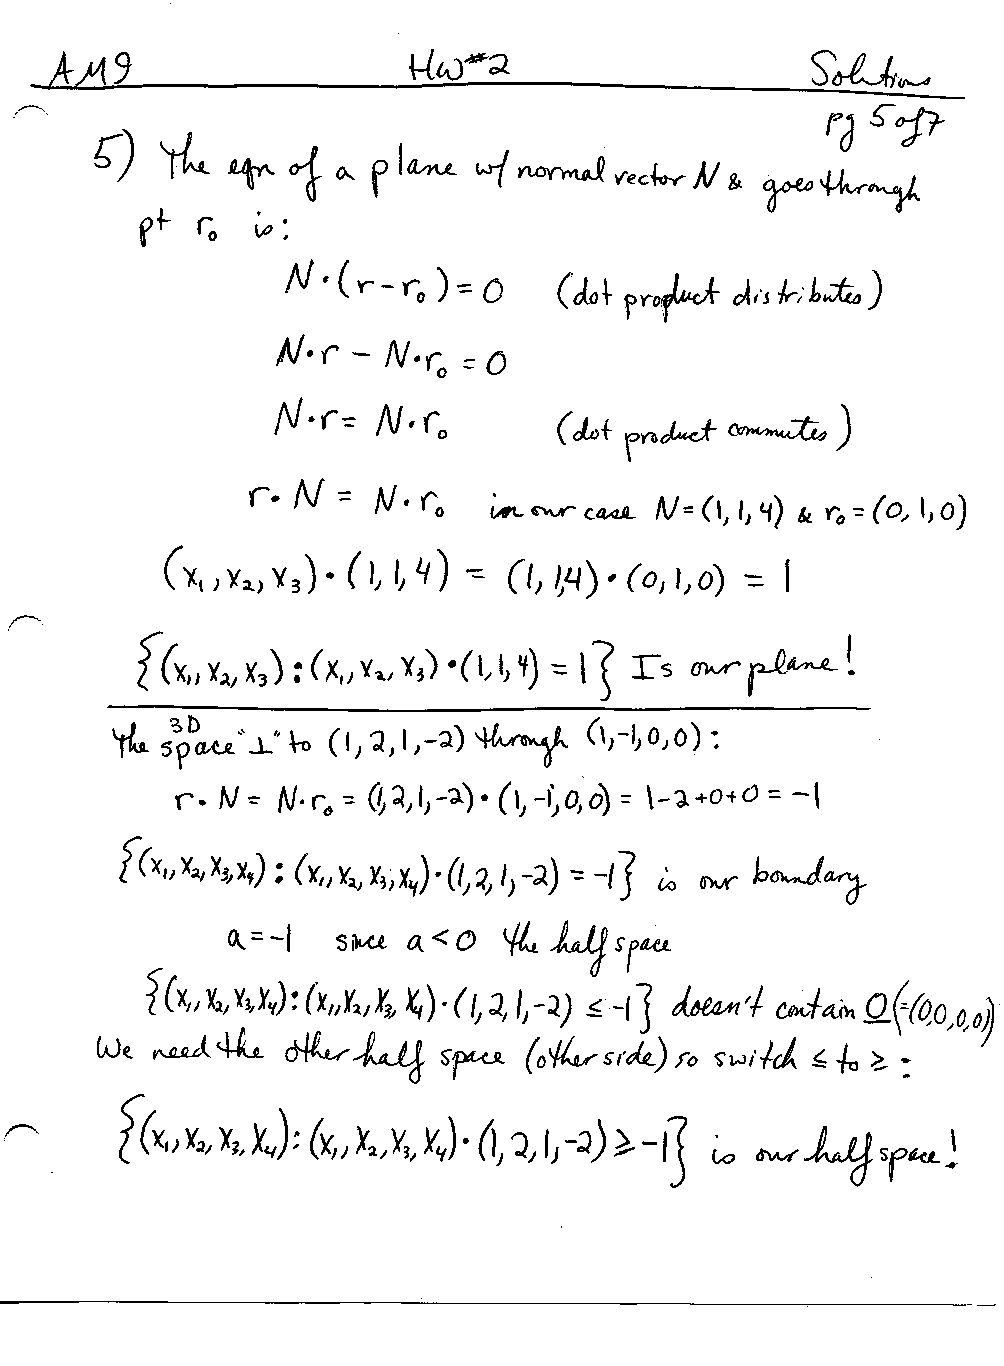 AM9 HW#2 Solutions
pg 5 of 7
5) The eqn of a plane w/ normal vector N & goes through
pt r₀ is:
N·(r-r₀)=0 (dot product distributes)
N·r - N·r₀ = 0
N·r = N·r₀ (dot product commutes)
r·N = N·r₀ in our case N=(1,1,4) & r₀=(0,1,0)
(x₁,x₂,x₃)·(1,1,4) = (1,1,4)·(0,1,0) = 1
{(x₁,x₂,x₃):(x₁,x₂,x₃)·(1,1,4)=1} Is our plane!
The 3D space "⊥" to (1,2,1,-2) through (1,-1,0,0):
r·N = N·r₀ = (1,2,1,-2)·(1,-1,0,0) = 1-2+0+0 = -1
{(x₁,x₂,x₃,x₄):(x₁,x₂,x₃,x₄)·(1,2,1,-2) = -1} is our boundary
a=-1 since a<0 the half space
{(x₁,x₂,x₃,x₄):(x₁,x₂,x₃,x₄)·(1,2,1,-2) ≤ -1} doesn't contain O(=(0,0,0,0))
We need the other half space (other side) so switch ≤ to ≥:
{(x₁,x₂,x₃,x₄):(x₁,x₂,x₃,x₄)·(1,2,1,-2) ≥ -1} is our half space!